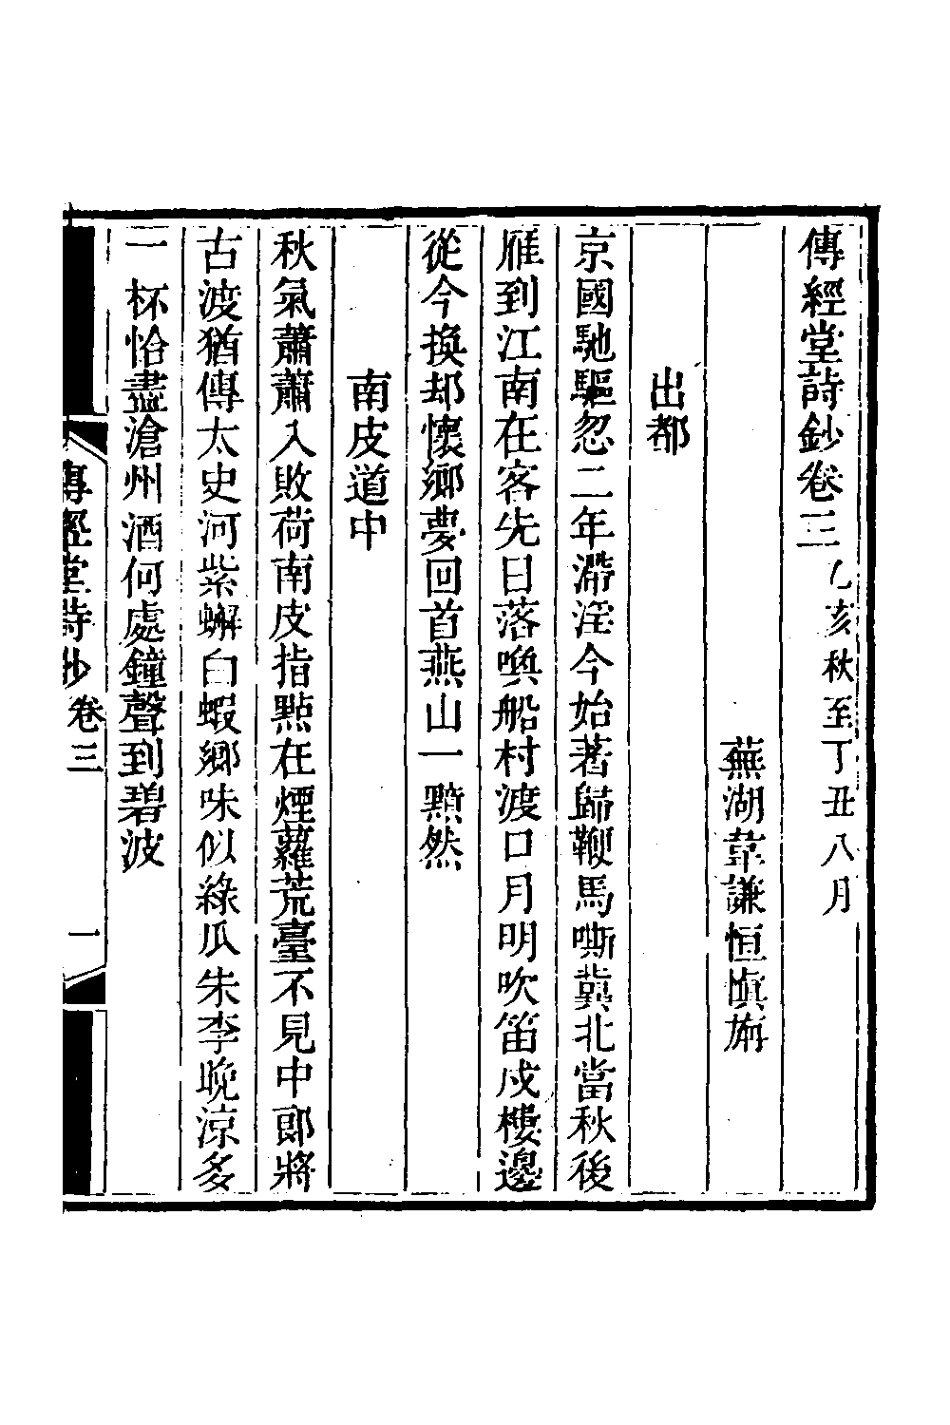 傳經堂詩鈔卷三乙亥秋至丁丑八月
蕪湖韋謙恒慎旃
出都
京國馳驅忽二年滯淫今始著歸鞭馬嘶冀北當秋後
雁到江南在客先日落喚船村渡口月明吹笛戍樓邊
從今換却懷鄉夢回首燕山一點然
南皮道中
秋氣蕭蕭入敗荷南皮指點在煙蘿荒臺不見中郎將
古渡猶傳太史河紫蠏白蝦鄉味似綠瓜朱李晚涼多
一杯恰盡滄州酒何處鐘聲到碧波
傳經堂詩鈔卷三
一